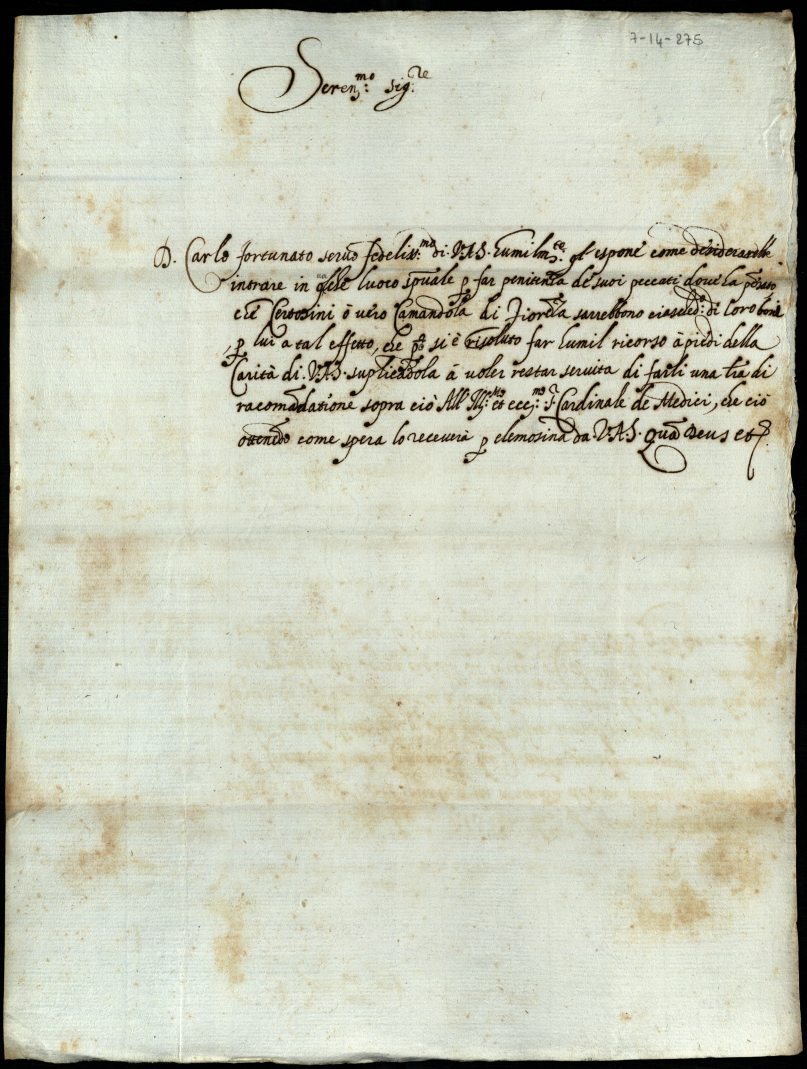 7-14-275
Seren.mo Sig.re
D. Carlo fortunato servo fedeliss.mo di V.A.S. humilm.te gl'espone come desiderarebbe
intrare in qlche luoco spuale p far penitenza de suoi peccati dove ha pēsato
che Certosini ò vero Camandola di Fiorēza sarrebbono ciasched.o di loro boni
p lui a tal effetto, che p.o si è risoluto far humil ricorso à piedi della
Carità di V.A.S. suplicādola à voler restar servita di farli una lra di
racomādatione sopra ciò All'Ill.mo et ecc.mo S.r Cardinale de Medici, che ciò
ottenēdo come spera lo receverà p elemosina da V.A.S. Quā Deus etc.